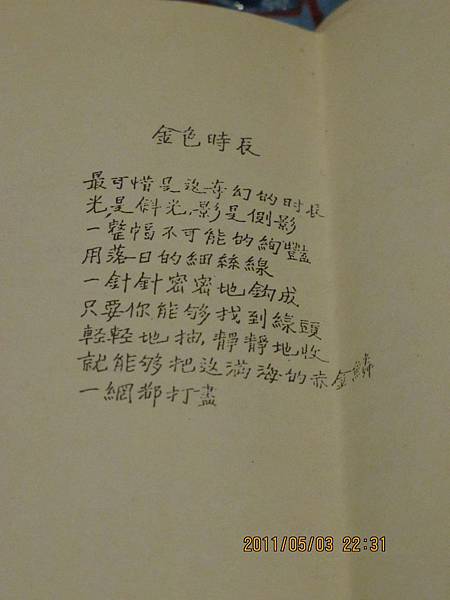 金色時辰
最可惜是这夸幻的时辰
光,是斜光,影是側影
一整幅不可能的絢豔
用落日的細絲線
一針針密密地鈎成
只要你能够找到線頭
輕輕地抽,靜靜地收
就能够把这滿海的赤金鱗
一網都打盡
2011/05/03 22:31